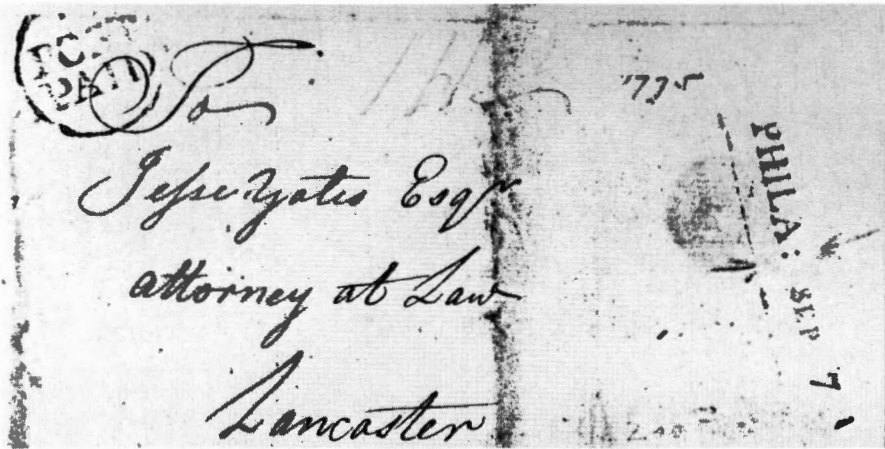 PAID
To
Jesse Yates Esqr
attorney at Law
Lancaster
1775
PHILA: SEP 7